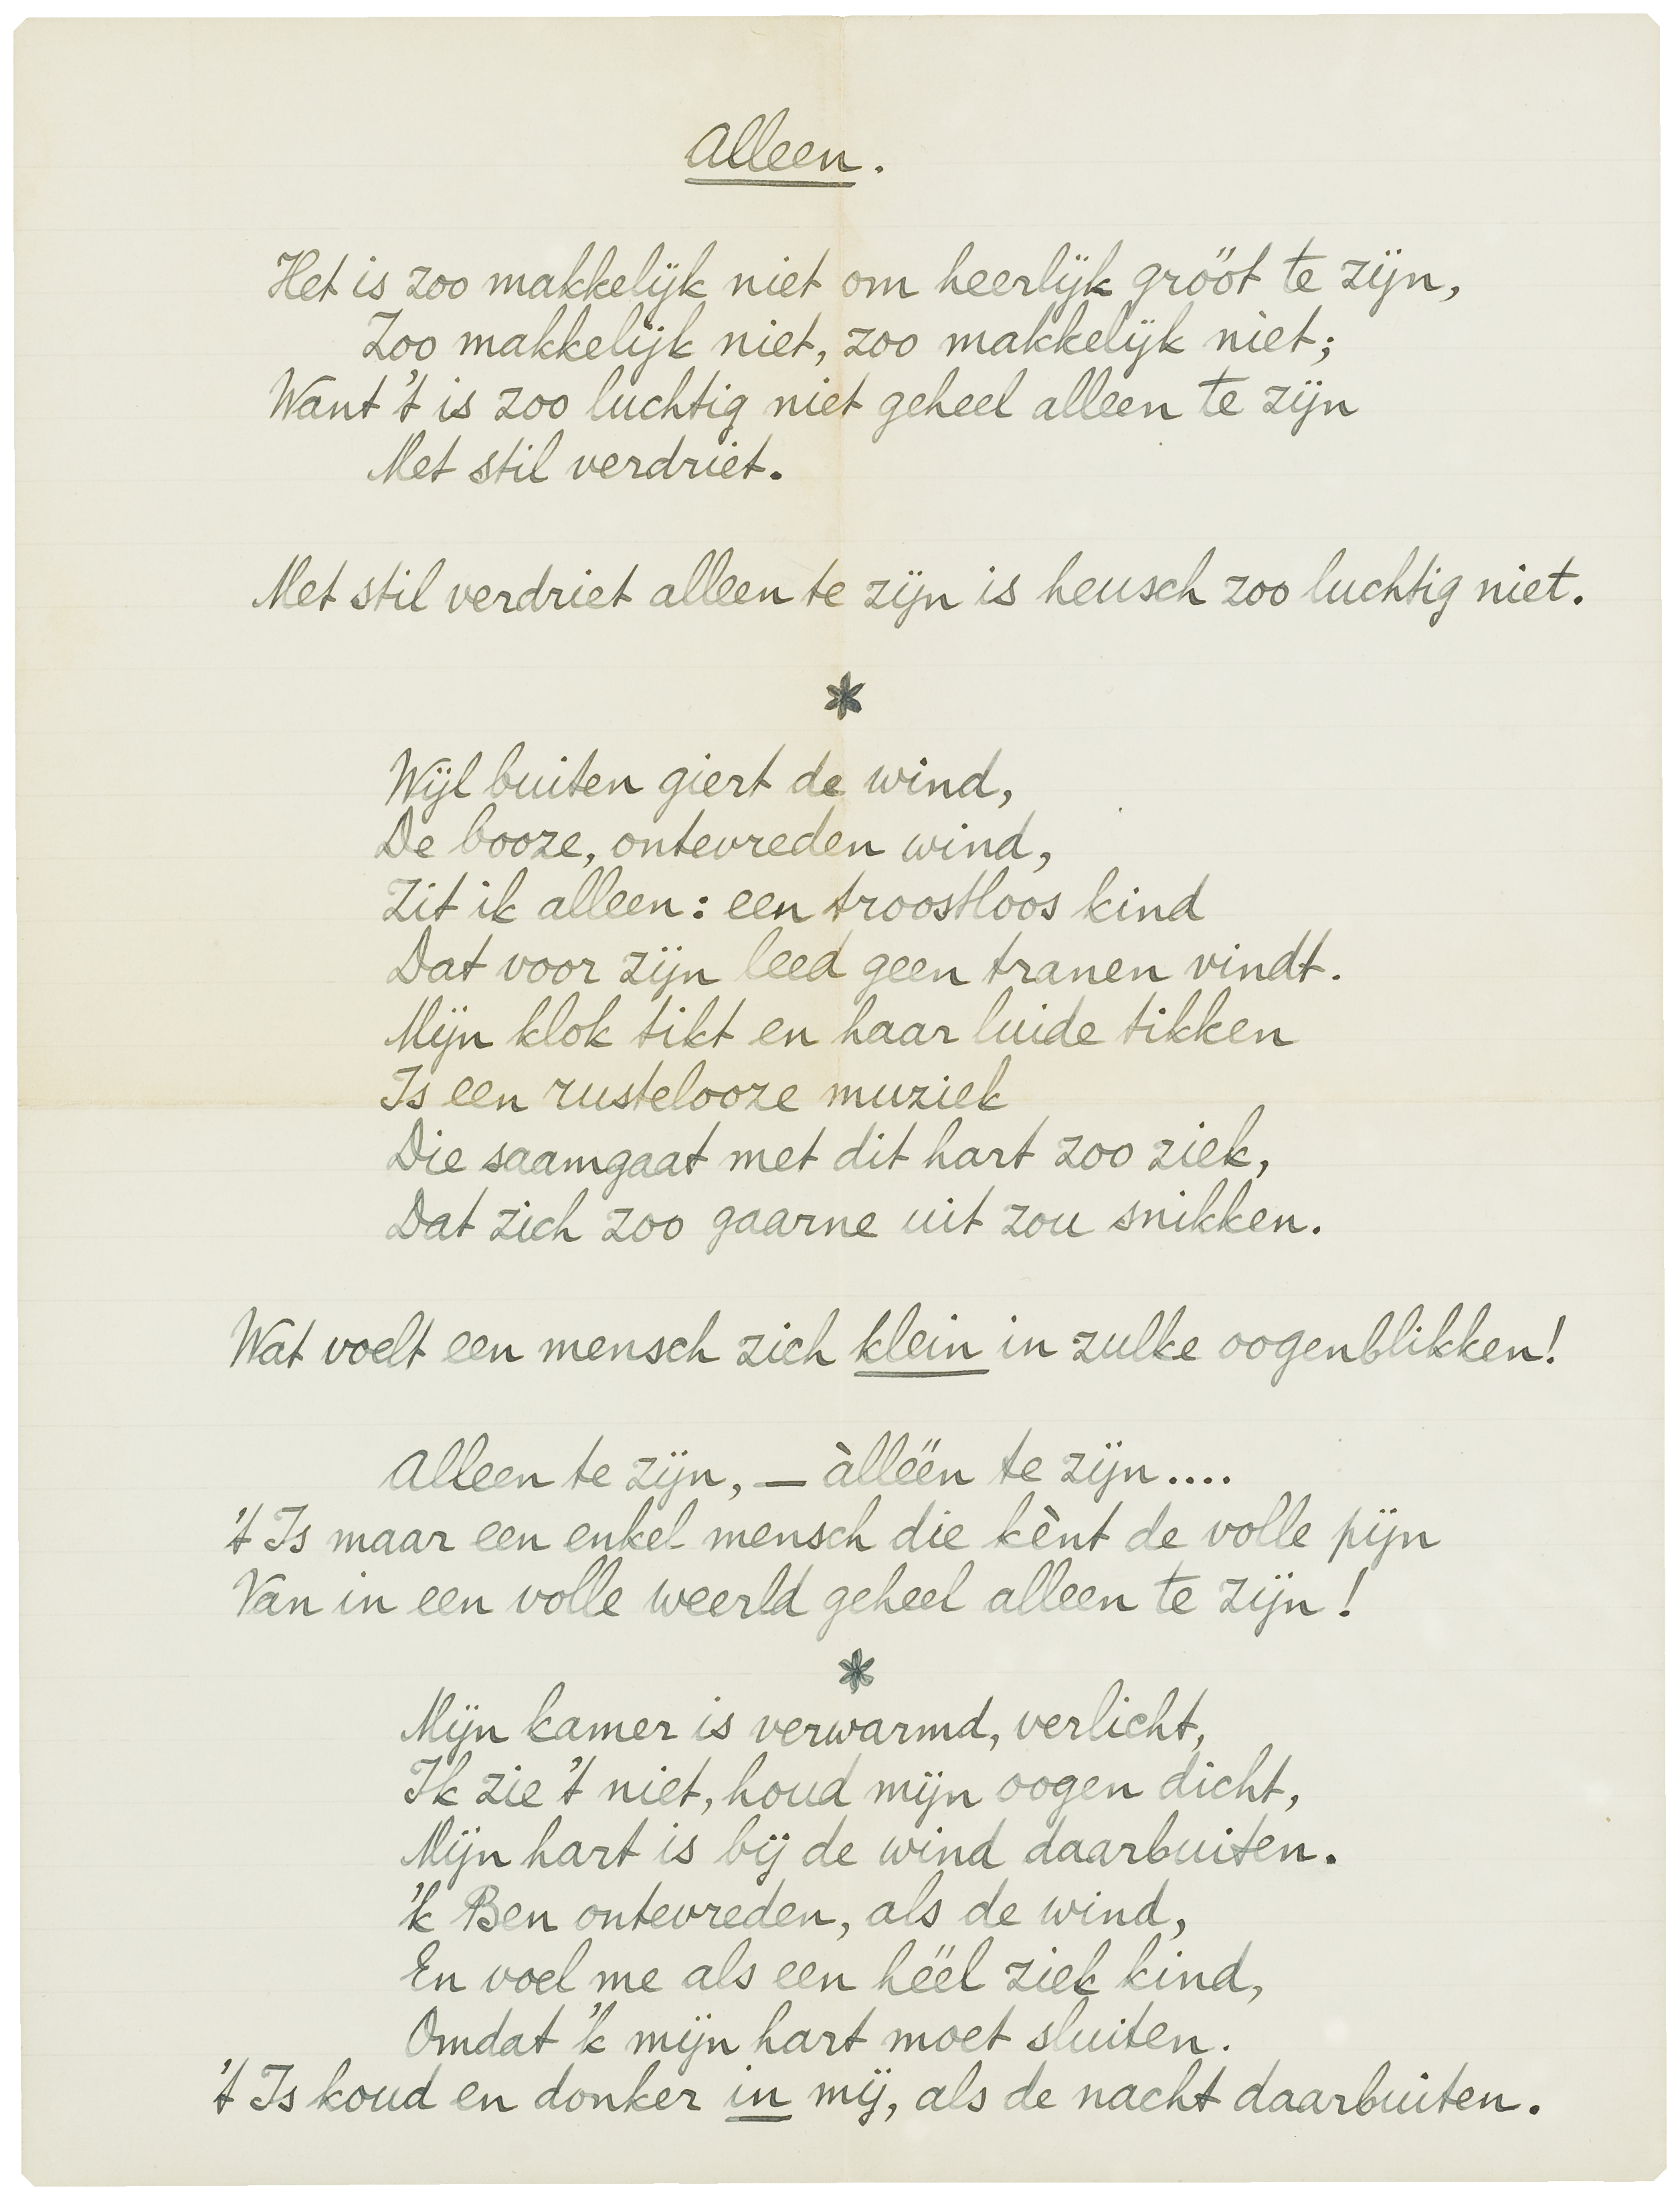 Alleen.
Het is zoo makkelijk niet om heerlijk grööt te zijn,
Zoo makkelijk niet, zoo makkelijk nièt;
Want 't is zoo luchtig niet geheel alleen te zijn
Met stil verdriet.
Met stil verdriet alleen te zijn is heusch zoo luchtig niet.
*
Wijl buiten giert de wind,
De booze, ontevreden wind,
Zit ik alleen: een troostloos kind
Dat voor zijn leed geen tranen vindt.
Mijn klok tikt en haar luide tikken
Is een rustelooze muziek
Die saamgaat met dit hart zoo ziek,
Dat zich zoo gaarne uit zou snikken.
Wat voelt een mensch zich klein in zulke oogenblikken!
Alleen te zijn, — àllëën te zijn....
't Is maar een enkel mensch die kènt de volle pijn
Van in een volle weerld geheel alleen te zijn!
*
Mijn kamer is verwarmd, verlicht,
Ik zie 't niet, houd mijn oogen dicht,
Mijn hart is bij de wind daarbuiten.
'k Ben ontevreden, als de wind,
En voel me als een hëël ziek kind,
Omdat 'k mijn hart moet sluiten.
't Is koud en donker in mij, als de nacht daarbuiten.